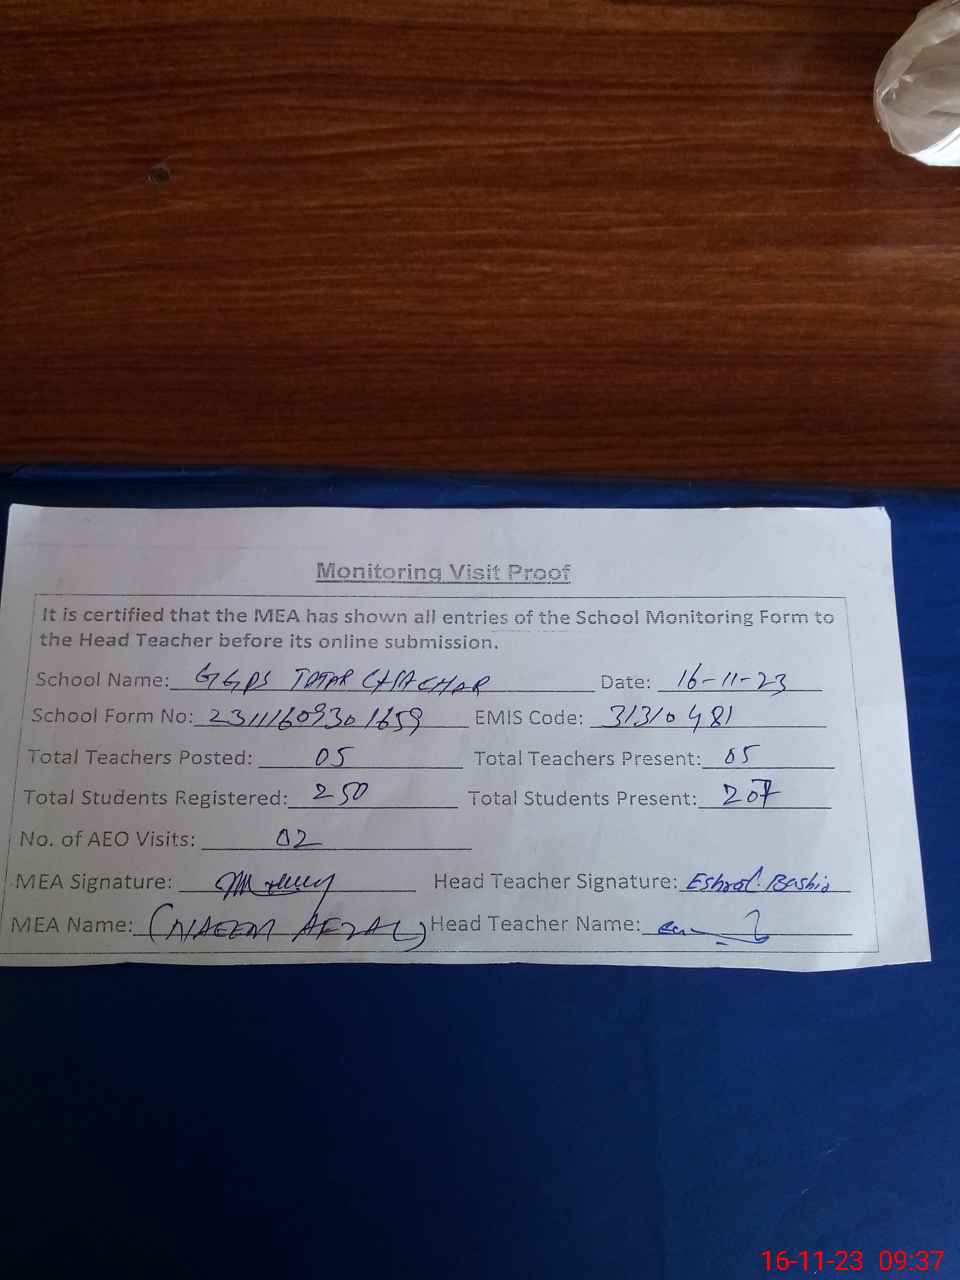 Monitoring Visit Proof
It is certified that the MEA has shown all entries of the School Monitoring Form to
the Head Teacher before its online submission.
School Name: GGPS TATAR CHACHAR Date: 16-11-23
School Form No: 23111609301659 EMIS Code: 31310481
Total Teachers Posted: 05 Total Teachers Present: 05
Total Students Registered: 250 Total Students Present: 207
No. of AEO Visits: 02
MEA Signature: Head Teacher Signature: Bashir
MEA Name: (NAEEM AFZAL) Head Teacher Name:
16-11-23 09:37